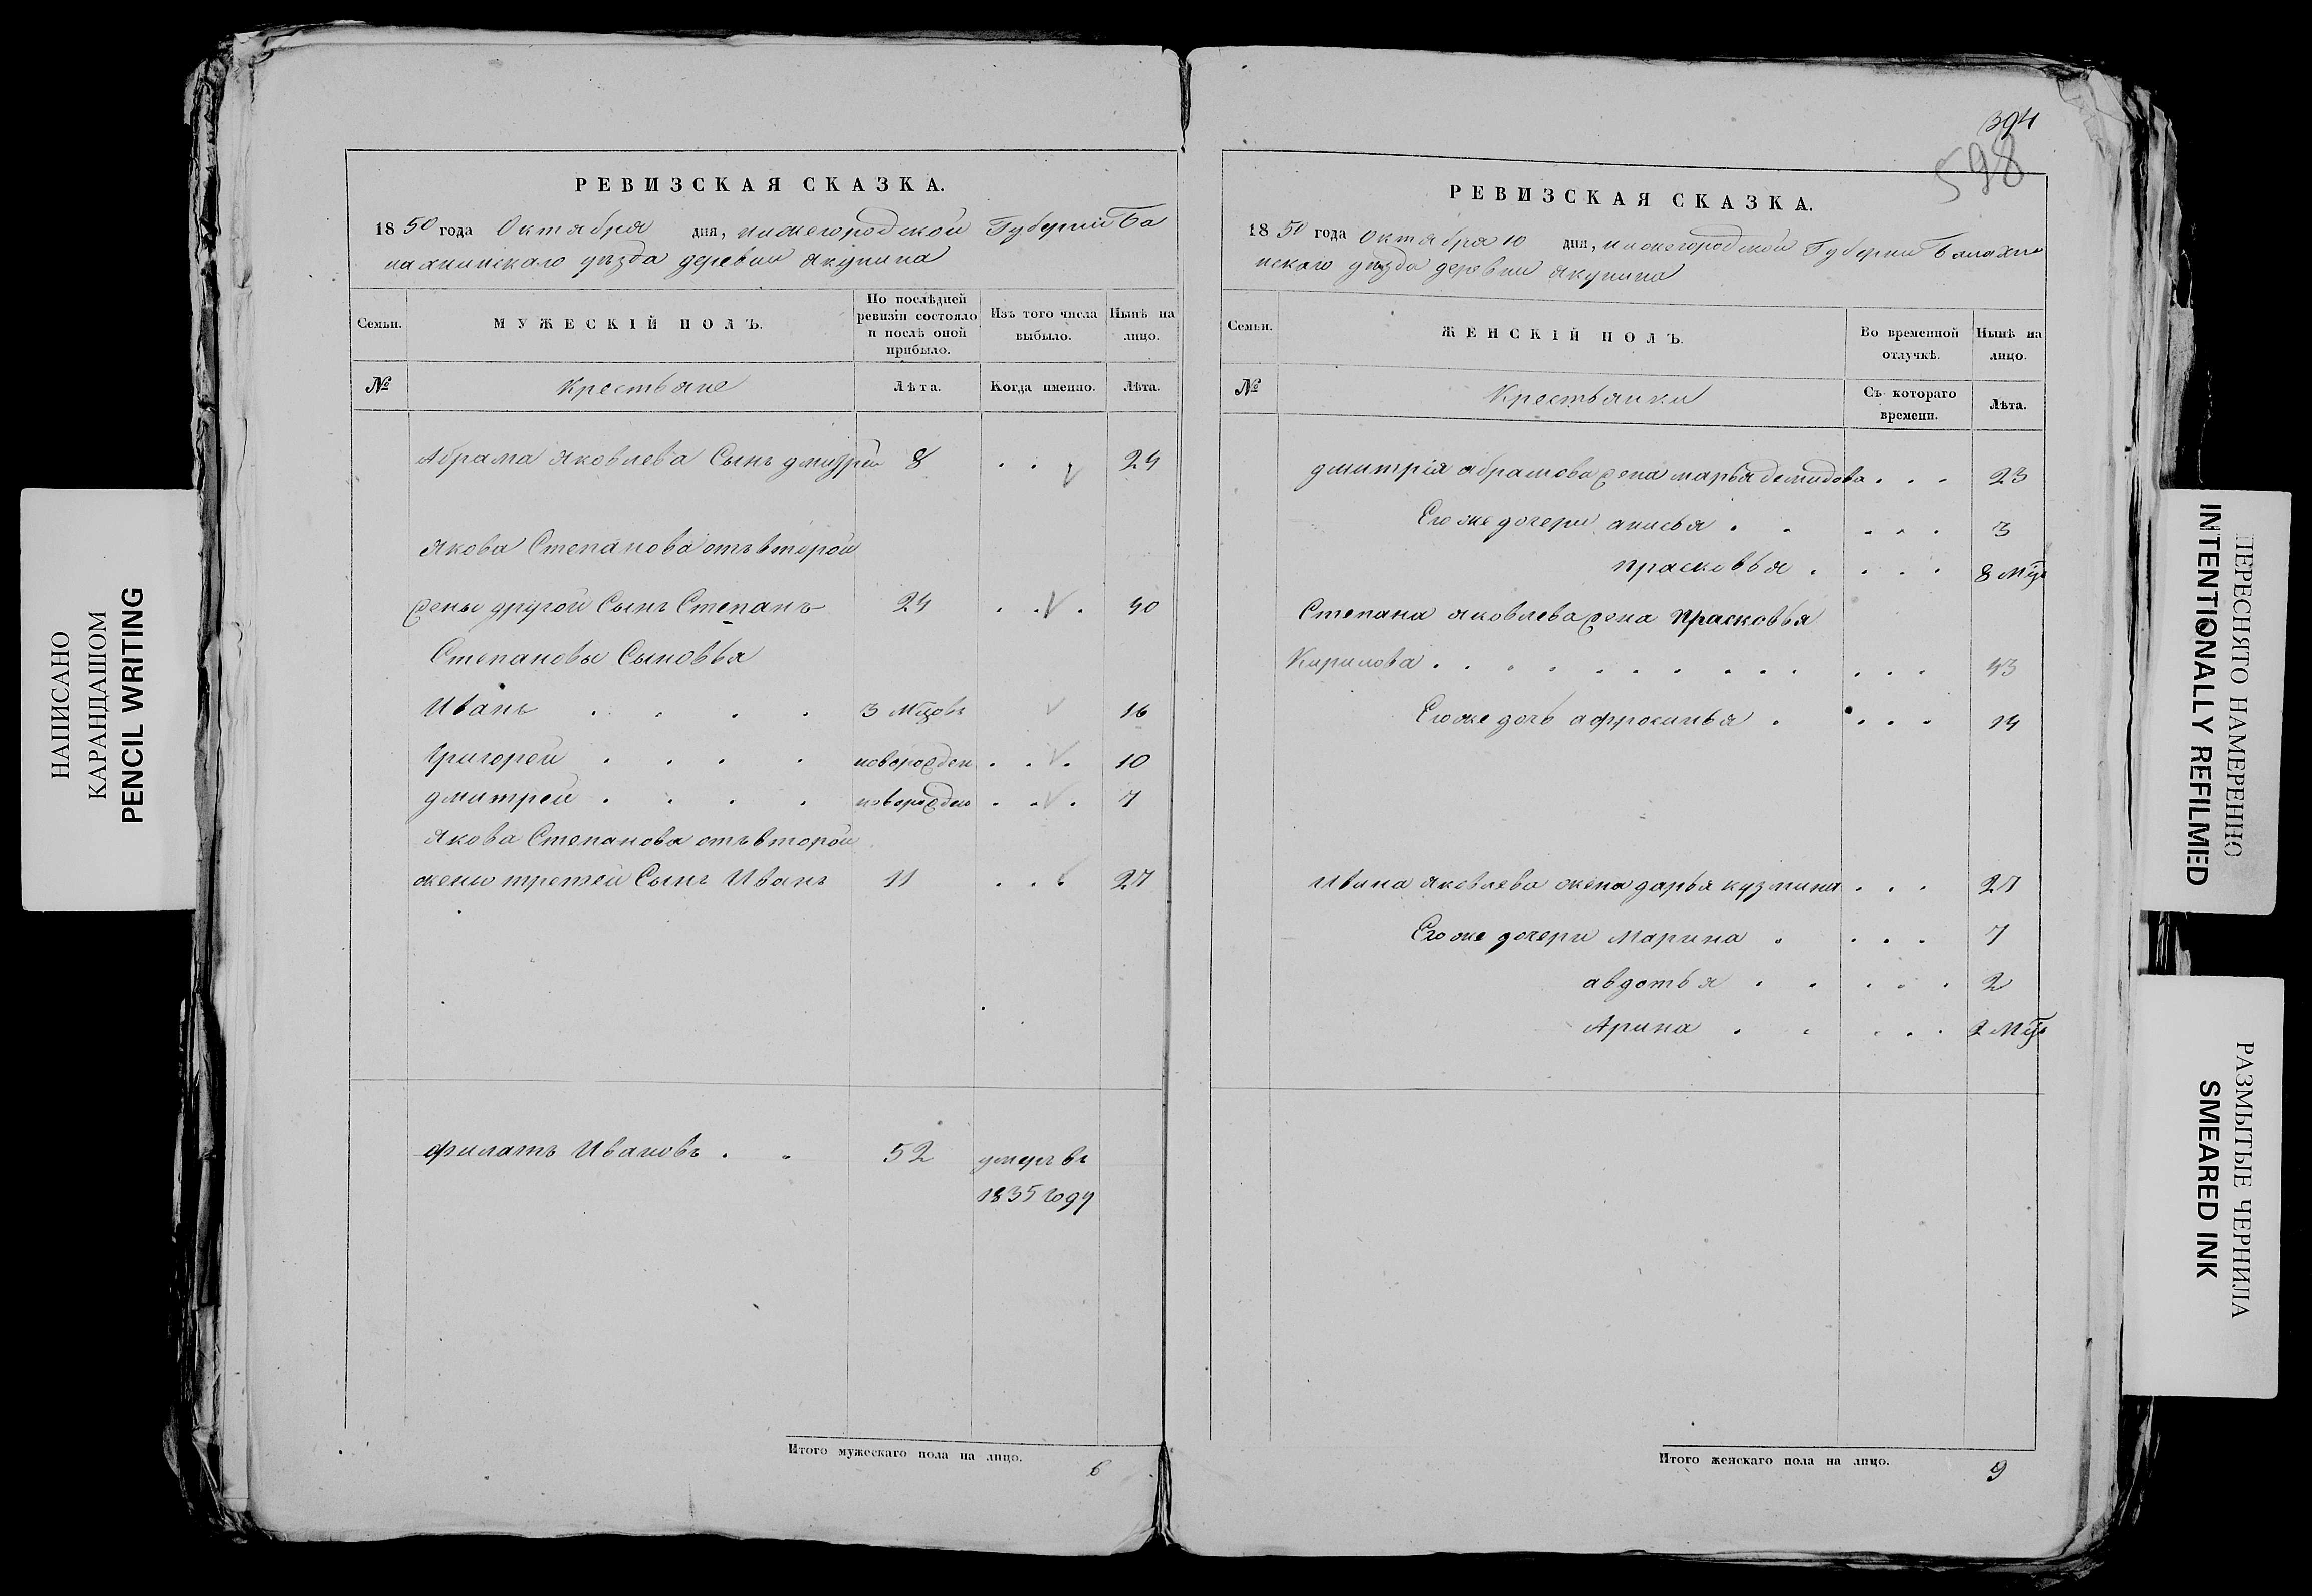 НАПИСАНО
КАРАНДАШОМ
PENCIL WRITING
РЕВИЗСКАЯ СКАЗКА.
1850 года Октября дня, нижегородской Губернии Ба
лахнинскаго уезда деревни Якунина
Семьи.
МУЖЕСКІЙ ПОЛЪ.
По послѣдней ревизіи состояло и послѣ оной прибыло.
Изъ того числа выбыло.
Нынѣ на лицо.
№
Крестьяне
Лѣта.
Когда именно.
Лѣта.
Абрама Яковлева Сынъ дмитрей 8 . . 24
Якова Степанова отъ второй
жены другой Сынъ Степанъ 24 . . . 40
Степановы Сыновья
Иванъ . . . . 3 мцовъ 16
Григорей . . . . новорожден . . . 10
дмитрей . . . . новорожден . . . 7
Якова Степанова отъ второй
жены третей Сынъ Иванъ 11 . . . 27
Филатъ Ивановъ . . 52 умеръ въ
1835 году
Итого мужескаго пола на лицо.
6
394
598
РЕВИЗСКАЯ СКАЗКА.
1850 года Октября 10 дня, нижегородской Губернии Балахни
нскаго уезда деревни Якунина
Семьи.
ЖЕНСКІЙ ПОЛЪ.
Во временной отлучкѣ.
Нынѣ на лицо.
№
Крестьянки
Съ котораго времени.
Лѣта.
дмитрія абрамова жена марья демидова . . . 23
Его же дочери анисья . . . . . 3
прасковья . . . . 8 мцъ
Степана яковлева жена Прасковья
Кирилова . . . . . . . . . . . . 43
Его же дочь афросинья . . . . 14
Ивана яковлева жена дарья кузмина . . . 27
Его же дочери Марина . . . . 7
авдотья . . . . . 2
Арина . . . . . 2 Мцъ
Итого женскаго пола на лицо.
9
ПЕРЕСНЯТО НАМЕРЕННО
INTENTIONALLY REFILMED
РАЗМЫТЫЕ ЧЕРНИЛА
SMEARED INK